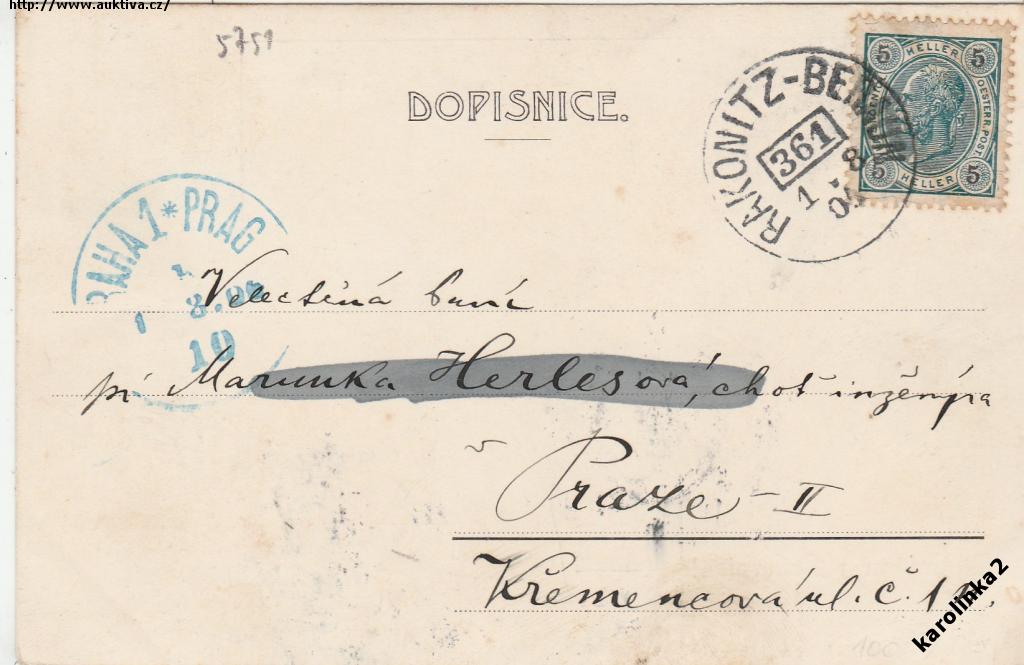 http://www.auktiva.cz/
5751
DOPISNICE.
RAKONITZ-BE
361
1 8
5 HELLER 5
OESTERR. POST
5 HELLER 5
PRAHA 1 * PRAG
1 3.
10
Velectěná paní
pí Marunka Herlesová, choť inženýra
v Praze-II
Křemencová ul. č. 1
karolinka2
100